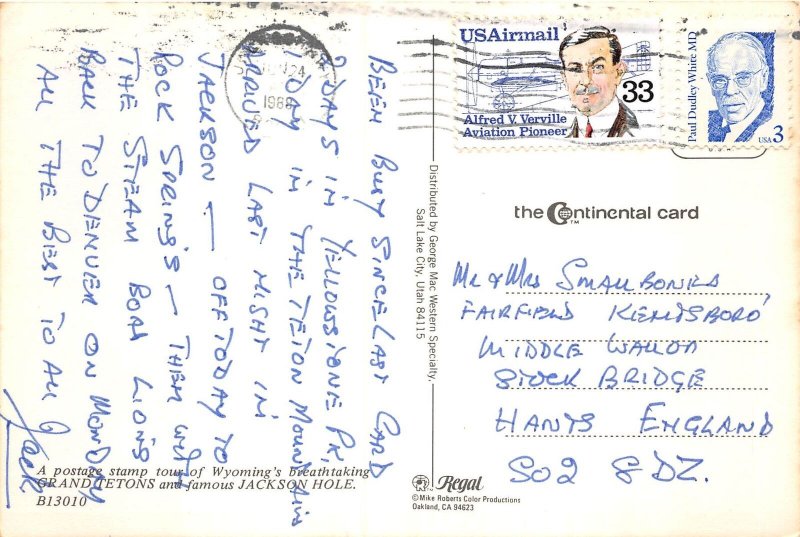 BEEN BUSY SINCE LAST CARD
2 DAYS IN YELLOWSTONE PK,
1 DAY IN THE TETON MOUNTAINS
ARRIVED LAST NIGHT IN
JACKSON — OFF TODAY TO
ROCK SPRINGS — THEN WITH
THE STEAM BOAT LIONS
BACK TO DENVER ON MONDAY
ALL THE BEST TO ALL
Jack
24
1988
USAirmail
33
Alfred V. Verville
Aviation Pioneer
Paul Dudley White MD
USA 3
the Continental card
TM
Distributed by George Mac Western Specialty,
Salt Lake City, Utah 84115
Mr & Mrs SMALLBONES
FAIRFIELD KENTSBORO
MIDDLE WALLOP
STOCK BRIDGE
HANTS ENGLAND
SO2 8DZ.
A postage stamp tour of Wyoming's breathtaking
GRAND TETONS and famous JACKSON HOLE.
B13010
Regal
© Mike Roberts Color Productions
Oakland, CA 94623